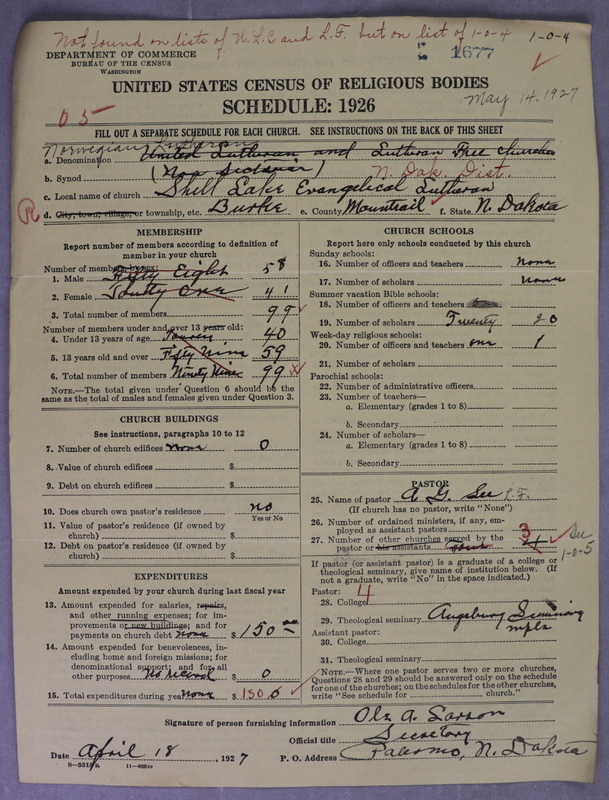 Not found on lists of N.L.C and L.F. but on list of 1-0-4 1-0-4
DEPARTMENT OF COMMERCE
BUREAU OF THE CENSUS
WASHINGTON
1677
UNITED STATES CENSUS OF RELIGIOUS BODIES
SCHEDULE: 1926
May 14, 1927
05
FILL OUT A SEPARATE SCHEDULE FOR EACH CHURCH. SEE INSTRUCTIONS ON THE BACK OF THIS SHEET
Norwegian Lutheran
a. Denomination United Lutheran and Lutheran Free Churches
b. Synod (Non Sectarian) N. Dak. Dist.
c. Local name of church Shell Lake Evangelical Lutheran
R d. City, town, village, or township, etc. Burke e. County Mountrail f. State N. Dakota
MEMBERSHIP
Report number of members according to definition of member in your church
Number of members by sex:
1. Male Fifty Eight 58
2. Female Fourty One 41
3. Total number of members 99
Number of members under and over 13 years old:
4. Under 13 years of age 40
5. 13 years old and over Fifty Nine 59
6. Total number of members Ninety Nine 99
NOTE.—The total given under Question 6 should be the same as the total of males and females given under Question 3.
CHURCH BUILDINGS
See instructions, paragraphs 10 to 12
7. Number of church edifices none 0
8. Value of church edifices $
9. Debt on church edifices $
10. Does church own pastor's residence no
Yes or No
11. Value of pastor's residence (if owned by church) $
12. Debt on pastor's residence (if owned by church) $
EXPENDITURES
Amount expended by your church during last fiscal year
13. Amount expended for salaries, repairs, and other running expenses; for improvements or new buildings; and for payments on church debt none $150 00
14. Amount expended for benevolences, including home and foreign missions; for denominational support; and for all other purposes No record $ 0
15. Total expenditures during year none $150
CHURCH SCHOOLS
Report here only schools conducted by this church
Sunday schools:
16. Number of officers and teachers none
17. Number of scholars none
Summer vacation Bible schools:
18. Number of officers and teachers
19. Number of scholars Twenty 20
Week-day religious schools:
20. Number of officers and teachers one 1
21. Number of scholars
Parochial schools:
22. Number of administrative officers
23. Number of teachers—
a. Elementary (grades 1 to 8)
b. Secondary
24. Number of scholars—
a. Elementary (grades 1 to 8)
b. Secondary
PASTOR
25. Name of pastor A G. Lee L.F.
(If church has no pastor, write "None")
26. Number of ordained ministers, if any, employed as assistant pastors
27. Number of other churches served by the pastor or his assistants 3 4
1-0-5
If pastor (or assistant pastor) is a graduate of a college or theological seminary, give name of institution below. (If not a graduate, write "No" in the space indicated.)
Pastor:
28. College 4
29. Theological seminary Augsburg Seminary
mpls
Assistant pastor:
30. College
31. Theological seminary
NOTE.—Where one pastor serves two or more churches, Questions 28 and 29 should be answered only on the schedule for one of the churches; on the schedules for the other churches, write "See schedule for church."
Signature of person furnishing information Ole A. Larson
Official title Secretary
Date April 18, 1927 P. O. Address Palermo, N. Dakota